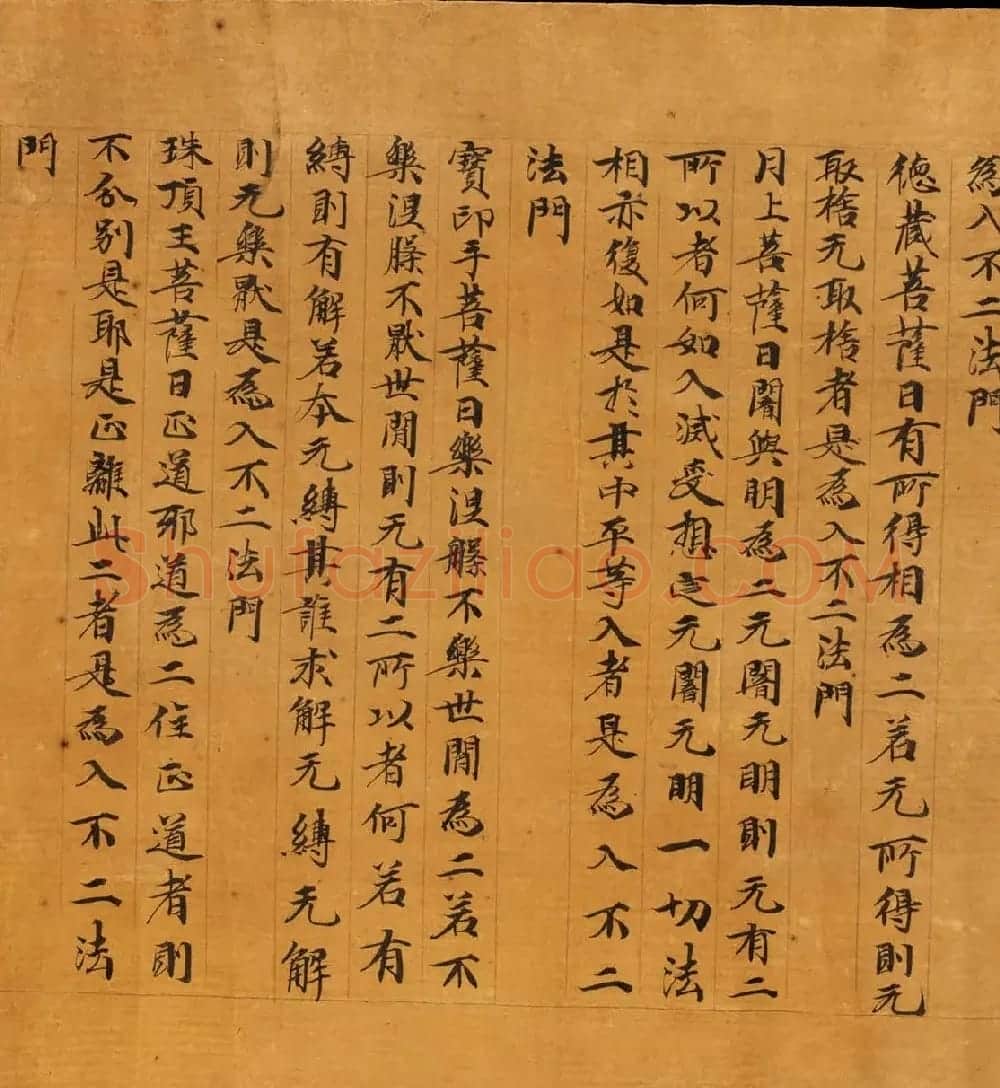 為入不二法門
德藏菩薩曰有所得相為二若无所得則无
取捨无取捨者是為入不二法門
月上菩薩曰闇與明為二无闇无明則无有二
所以者何如入滅受想定无闇无明一切法
相亦復如是於其中平等入者是為入不二
法門
寶印手菩薩曰樂涅槃不樂世間為二若不
樂涅槃不厭世間則无有二所以者何若有
縛則有解若本无縛其誰求解无縛无解
則无樂厭是為入不二法門
珠頂王菩薩曰正道邪道為二住正道者則
不分別是耶是正離此二者是為入不二法
門
Shufaziliao.COM